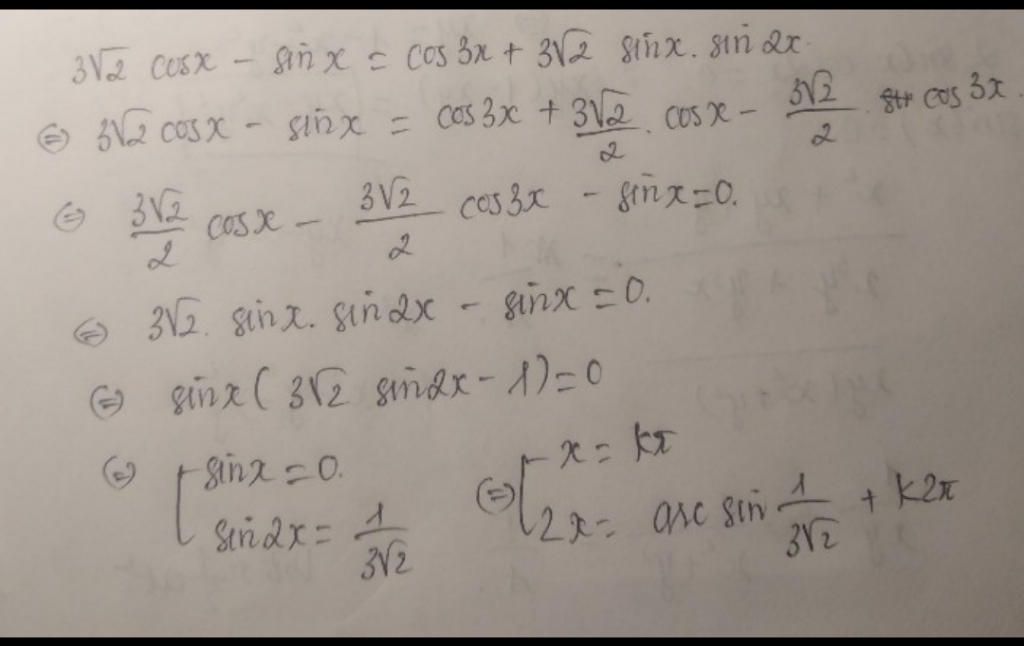 3√2 cosx - sinx = cos3x + 3√2 sinx. sin2x.
⇔ 3√2 cosx - sinx = cos3x + 3√2/2 . cosx - 3√2/2 . cos3x.
⇔ 3√2/2 cosx - 3√2/2 cos3x - sinx=0.
⇔ 3√2. sinx. sin2x - sinx = 0.
⇔ sinx( 3√2 sin2x - 1)=0
⇔ [ sinx = 0. ⇔ [ x = kπ
sin2x = 1/3√2 2x = arc sin 1/3√2 + k2π